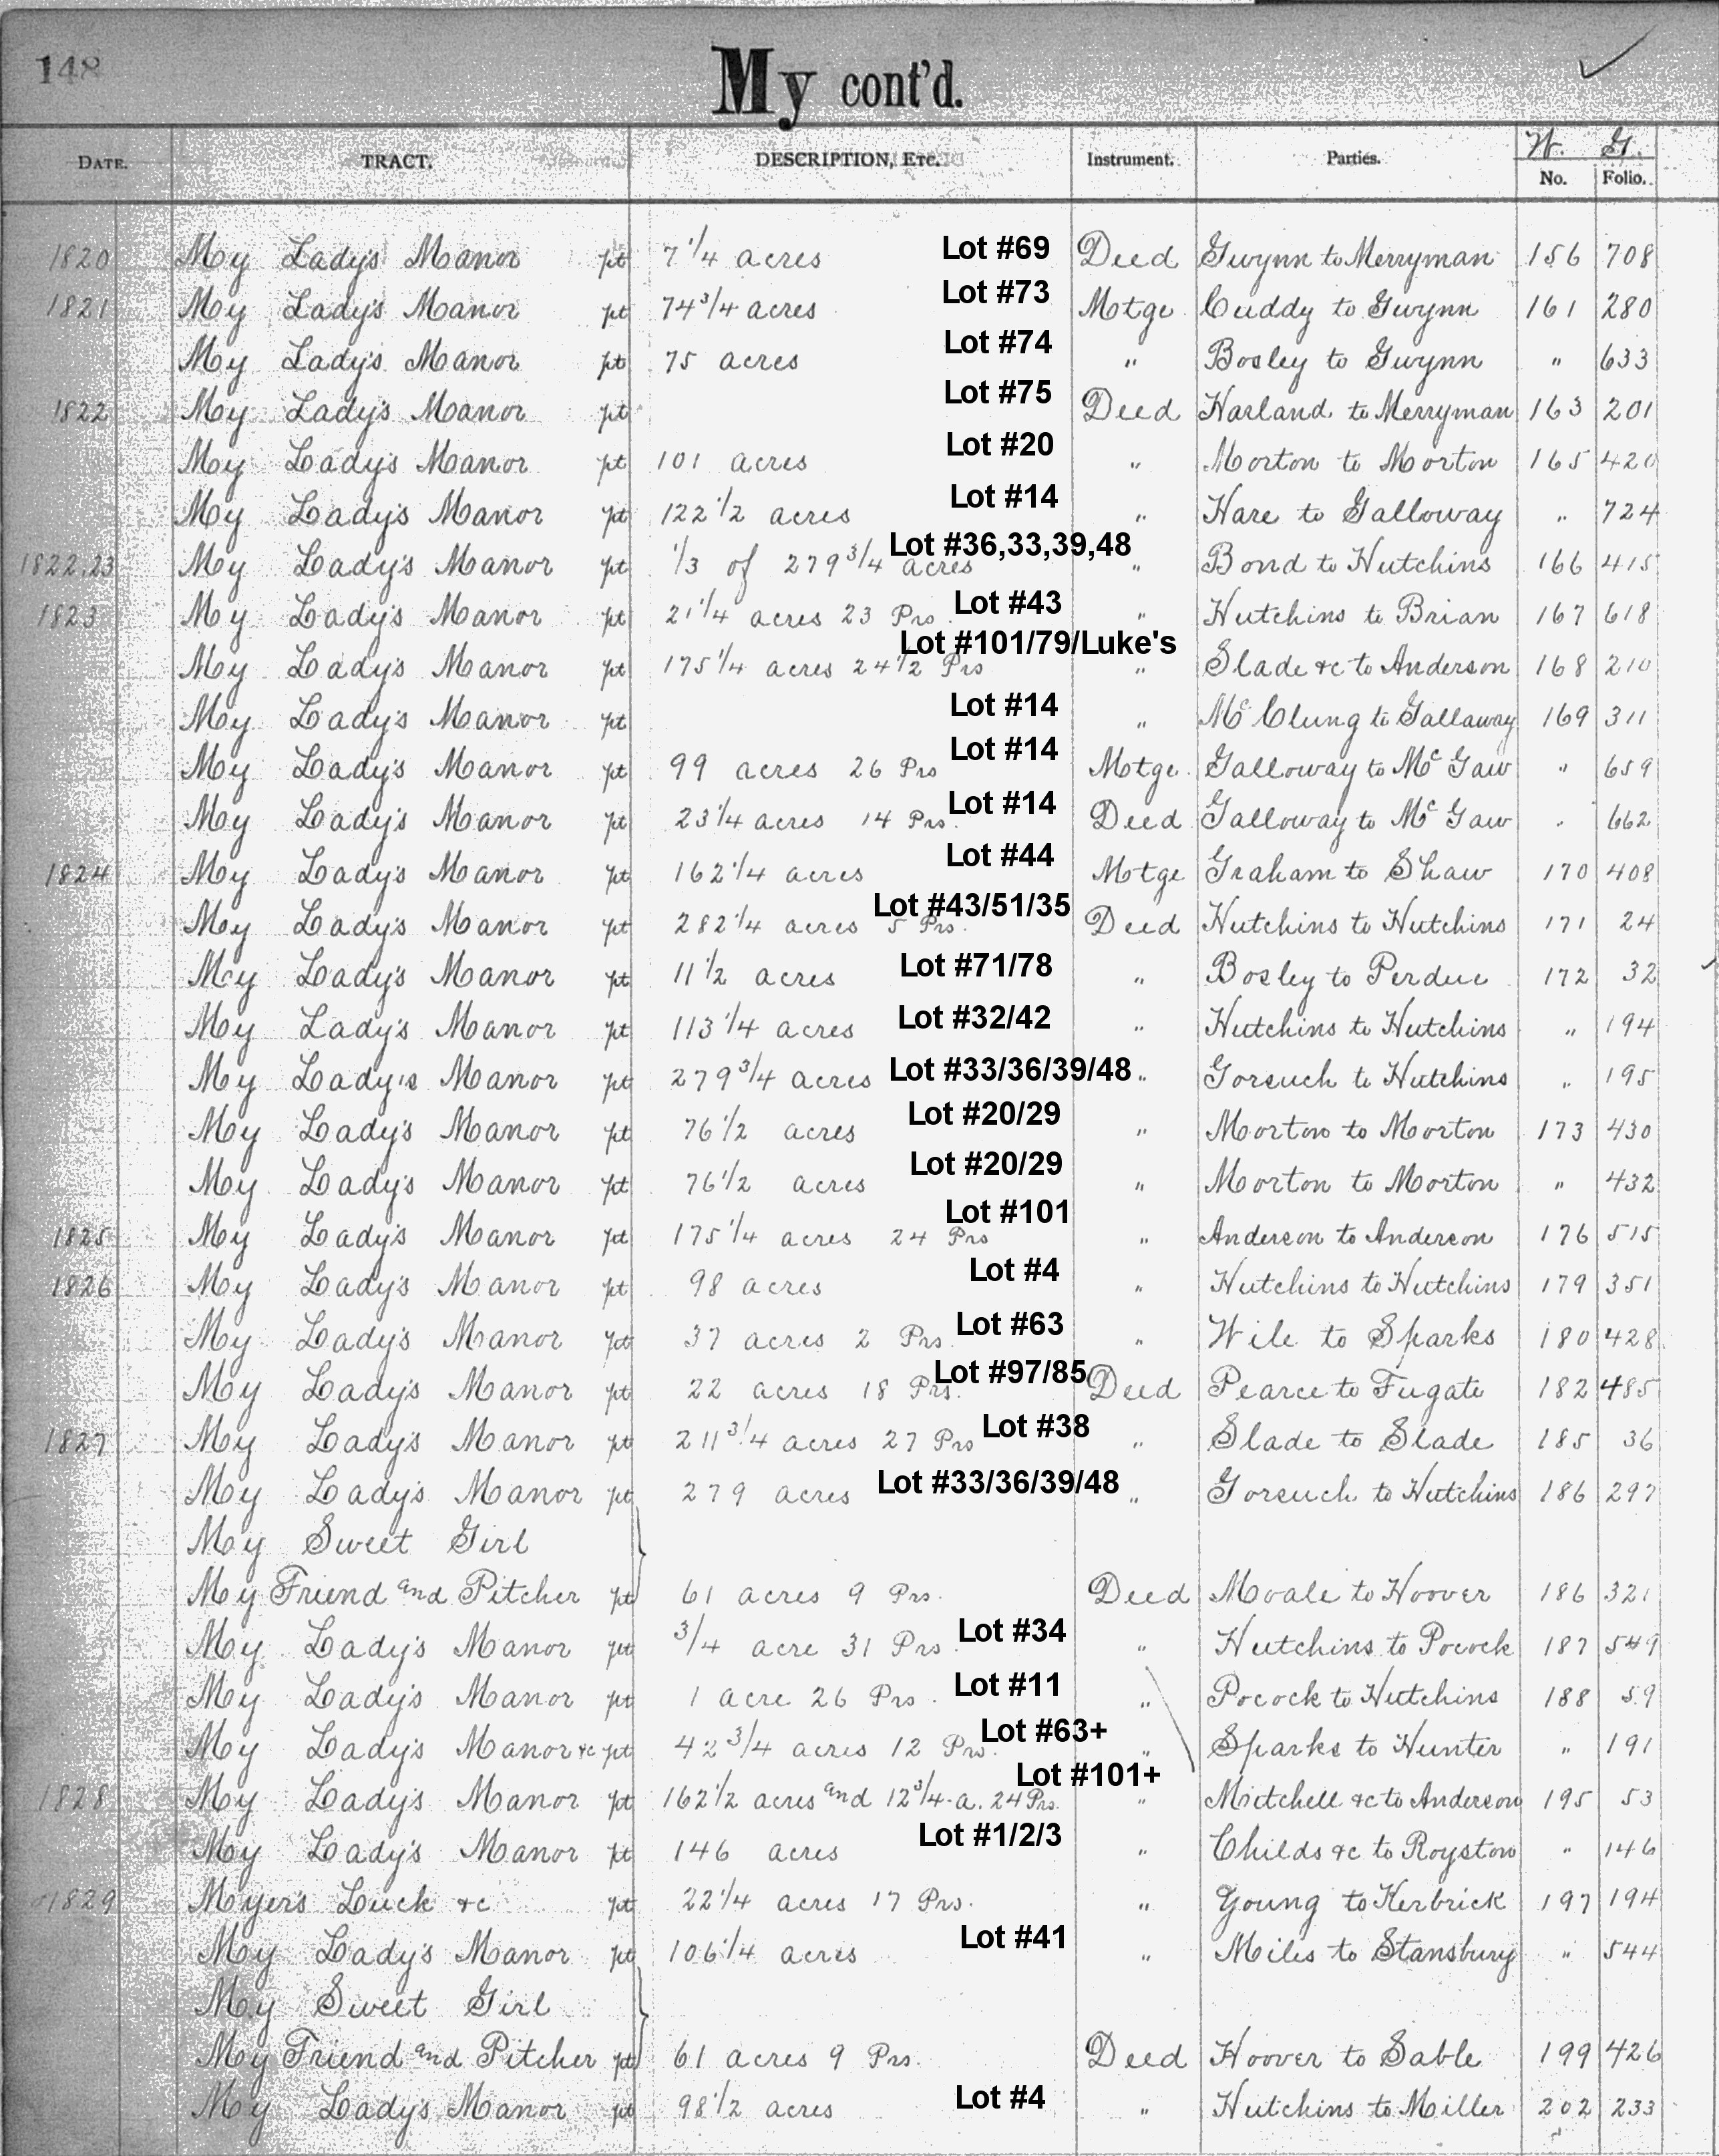 148
My cont'd.
DATE. TRACT. DESCRIPTION, ETC. Instrument. Parties. W. G.
No. Folio.
1820 My Lady's Manor pt 7 1/4 acres Lot #69 Deed Gwynn to Merryman 156 708
1821 My Lady's Manor pt 74 3/4 acres Lot #73 Motge Cuddy to Gwynn 161 280
My Lady's Manor pt 75 acres Lot #74 " Bosley to Gwynn " 633
1822 My Lady's Manor pt Lot #75 Deed Harland to Merryman 163 201
My Lady's Manor pt 101 acres Lot #20 " Morton to Morton 165 420
My Lady's Manor pt 122 1/2 acres Lot #14 " Hare to Galloway " 724
1822,23 My Lady's Manor pt 1/3 of 279 3/4 acres Lot #36,33,39,48 " Bond to Hutchins 166 415
1823 My Lady's Manor pt 21 1/4 acres 23 Prs. Lot #43 " Hutchins to Brian 167 618
My Lady's Manor pt 175 1/4 acres 24 1/2 Prs Lot #101/79/Luke's " Slade &c to Anderson 168 210
My Lady's Manor pt Lot #14 " McClung to Gallaway 169 311
My Lady's Manor pt 99 acres 26 Prs Lot #14 Motge. Galloway to McGaw " 659
My Lady's Manor pt 23 1/4 acres 14 Prs. Lot #14 Deed Galloway to McGaw " 662
1824 My Lady's Manor pt 162 1/4 acres Lot #44 Motge Graham to Shaw 170 408
My Lady's Manor pt 282 1/4 acres 5 Prs. Lot #43/51/35 Deed Hutchins to Hutchins 171 24
My Lady's Manor pt 11 1/2 acres Lot #71/78 " Bosley to Perdue 172 32
My Lady's Manor pt 113 1/4 acres Lot #32/42 " Hutchins to Hutchins " 194
My Lady's Manor pt 279 3/4 acres Lot #33/36/39/48 " Gorsuch to Hutchins " 195
My Lady's Manor pt 76 1/2 acres Lot #20/29 " Morton to Morton 173 430
My Lady's Manor pt 76 1/2 acres Lot #20/29 " Morton to Morton " 432
1825 My Lady's Manor pt 175 1/4 acres 24 Prs Lot #101 " Anderson to Anderson 176 515
1826 My Lady's Manor pt 98 acres Lot #4 " Hutchins to Hutchins 179 351
My Lady's Manor pt 37 acres 2 Prs. Lot #63 " Wile to Sparks 180 428
My Lady's Manor pt 22 acres 18 Prs. Lot #97/85 Deed Pearce to Fugate 182 485
1827 My Lady's Manor pt 211 3/4 acres 27 Prs Lot #38 " Slade to Slade 185 36
My Lady's Manor pt 279 acres Lot #33/36/39/48 " Gorsuch to Hutchins 186 297
My Sweet Girl
My Friend and Pitcher pt 61 acres 9 Prs. Deed Moale to Hoover 186 321
My Lady's Manor pt 3/4 acre 31 Prs. Lot #34 " Hutchins to Pocock 187 549
My Lady's Manor pt 1 acre 26 Prs. Lot #11 " Pocock to Hutchins 188 59
My Lady's Manor &c pt 42 3/4 acres 12 Prs. Lot #63+ " Sparks to Hunter " 191
1828 My Lady's Manor pt 162 1/2 acres and 12 3/4 a. 24 Prs. Lot #101+ " Mitchell &c to Anderson 195 53
My Lady's Manor pt 146 acres Lot #1/2/3 " Childs &c to Royston " 146
1829 Myers Luck &c pt 22 1/4 acres 17 Prs. " Young to Kerbrick 197 194
My Lady's Manor pt 106 1/4 acres Lot #41 " Miles to Stansbury " 544
My Sweet Girl
My Friend and Pitcher pt 61 acres 9 Prs. Deed Hoover to Sable 199 426
My Lady's Manor pt 98 1/2 acres Lot #4 " Hutchins to Miller 202 233